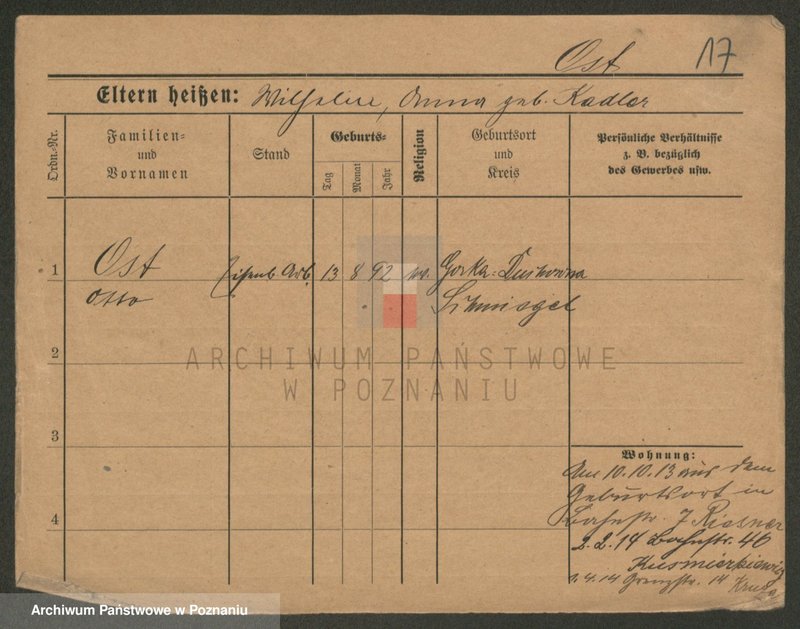 Ost 17
Eltern heißen: Wilhelm, Anna geb. Kadler
Ordn.-Nr.
Familien-
und
Vornamen
Stand
Geburts-
Tag
Monat
Jahr
Religion
Geburtsort
und
Kreis
Persönliche Verhältnisse
z. B. bezüglich
des Gewerbes usw.
1 Ost Eisenb. Arb. 13 8 92 ev. Gorka-Duchowna
Otto Schmiegel
2
3
4
Wohnung:
Am 10.10.13 aus dem
Geburtsort in
Bahnstr. 7
2.2.14 Bahnstr. 46
Kusmierkiewig
1.4.14 Grenzstr. 14
ARCHIWUM PAŃSTWOWE
W POZNANIU
Archiwum Państwowe w Poznaniu